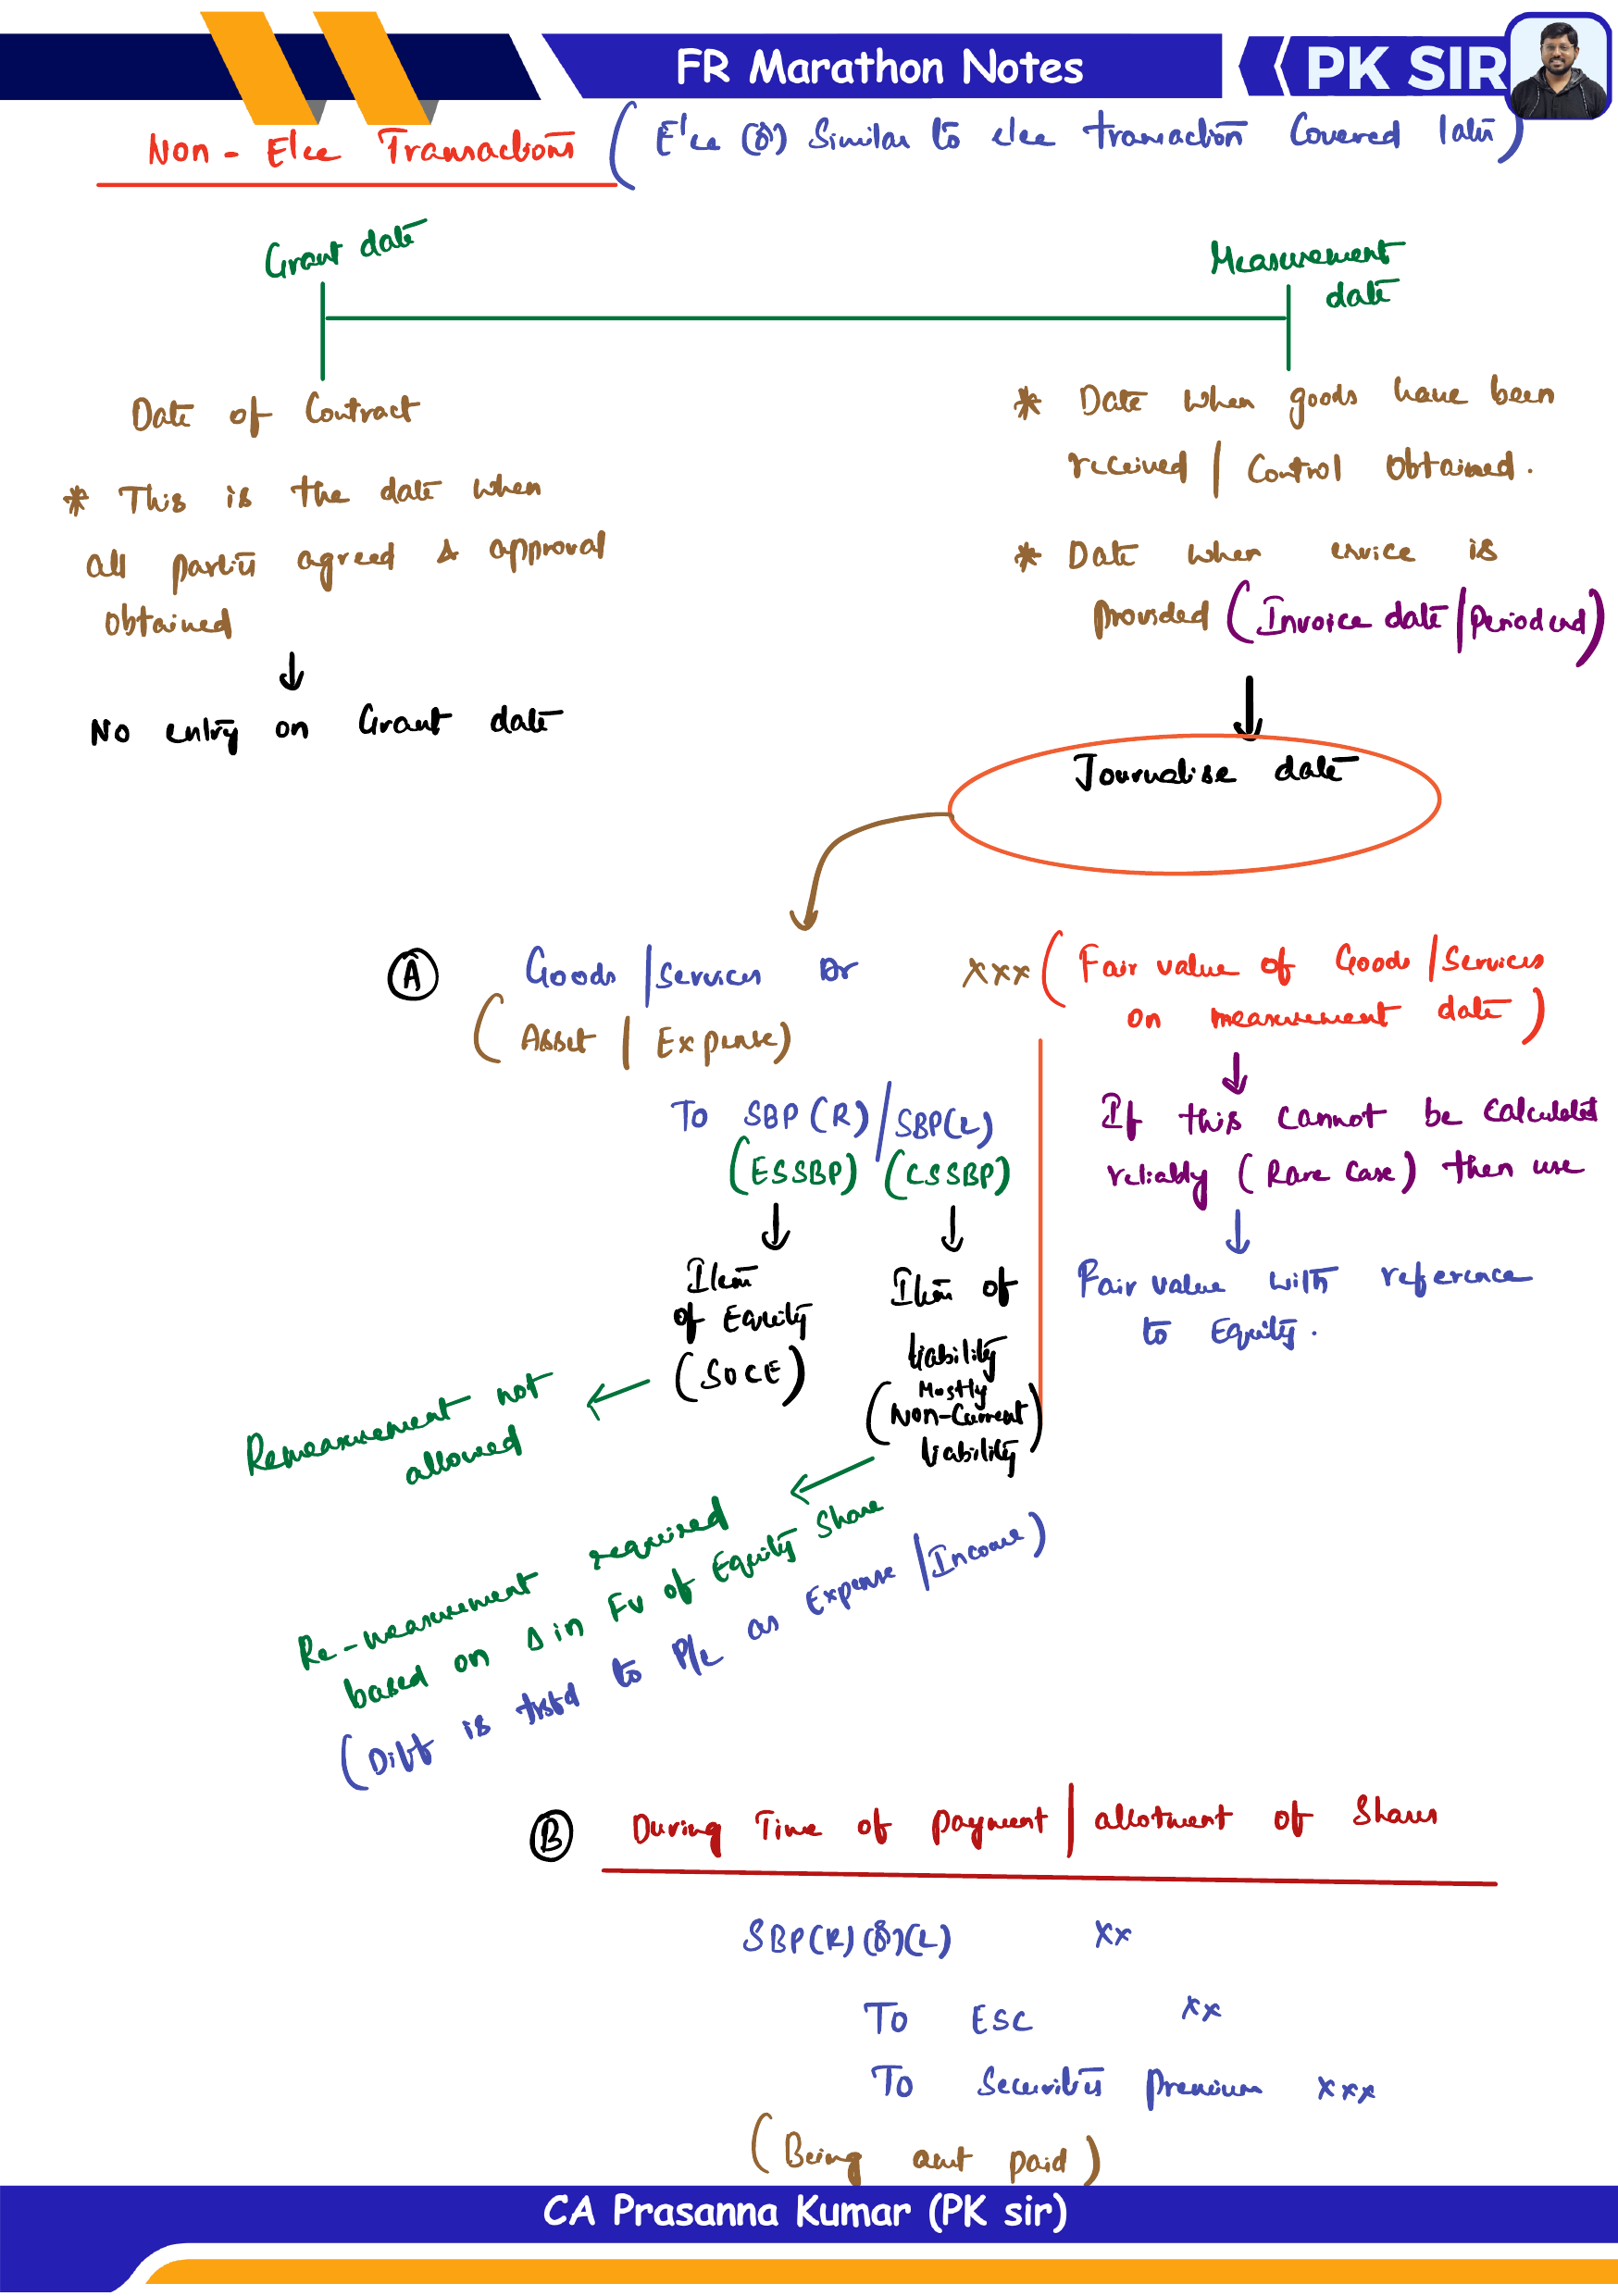 FR Marathon Notes
PK SIR
Non - E'ee Transactions (E'ee (or) Similar to e'ee transaction Covered later)
Grant date
Measurement date
Date of Contract
* This is the date when
all parties agreed & approval
obtained
No entry on Grant date
* Date when goods have been
received / Control Obtained.
* Date when ervice is
provided (Invoice date / Period end)
Journalise date
(A) Goods / Services Dr xxx (Fair value of Goods / Services
(Asset / Expense)
on measurement date)
To SBP (R) / SBP(L)
(ESSBP) (CSSBP)
If this cannot be calculated
reliably (Rare Case) then use
Fair value with reference
to Equity.
Item
of Equity
(SOCE)
Item of
liability
(Mostly
Non-Current
liability)
Remeasurement not
allowed
Re-measurement required
based on Δ in FV of Equity Share
(Diff is trsfd to P/L as Expense / Income)
(B) During Time of payment / allotment of Shares
SBP(R) (or) (L) xx
To ESC xx
To Securities Premium xxx
(Being amt paid)
CA Prasanna Kumar (PK sir)